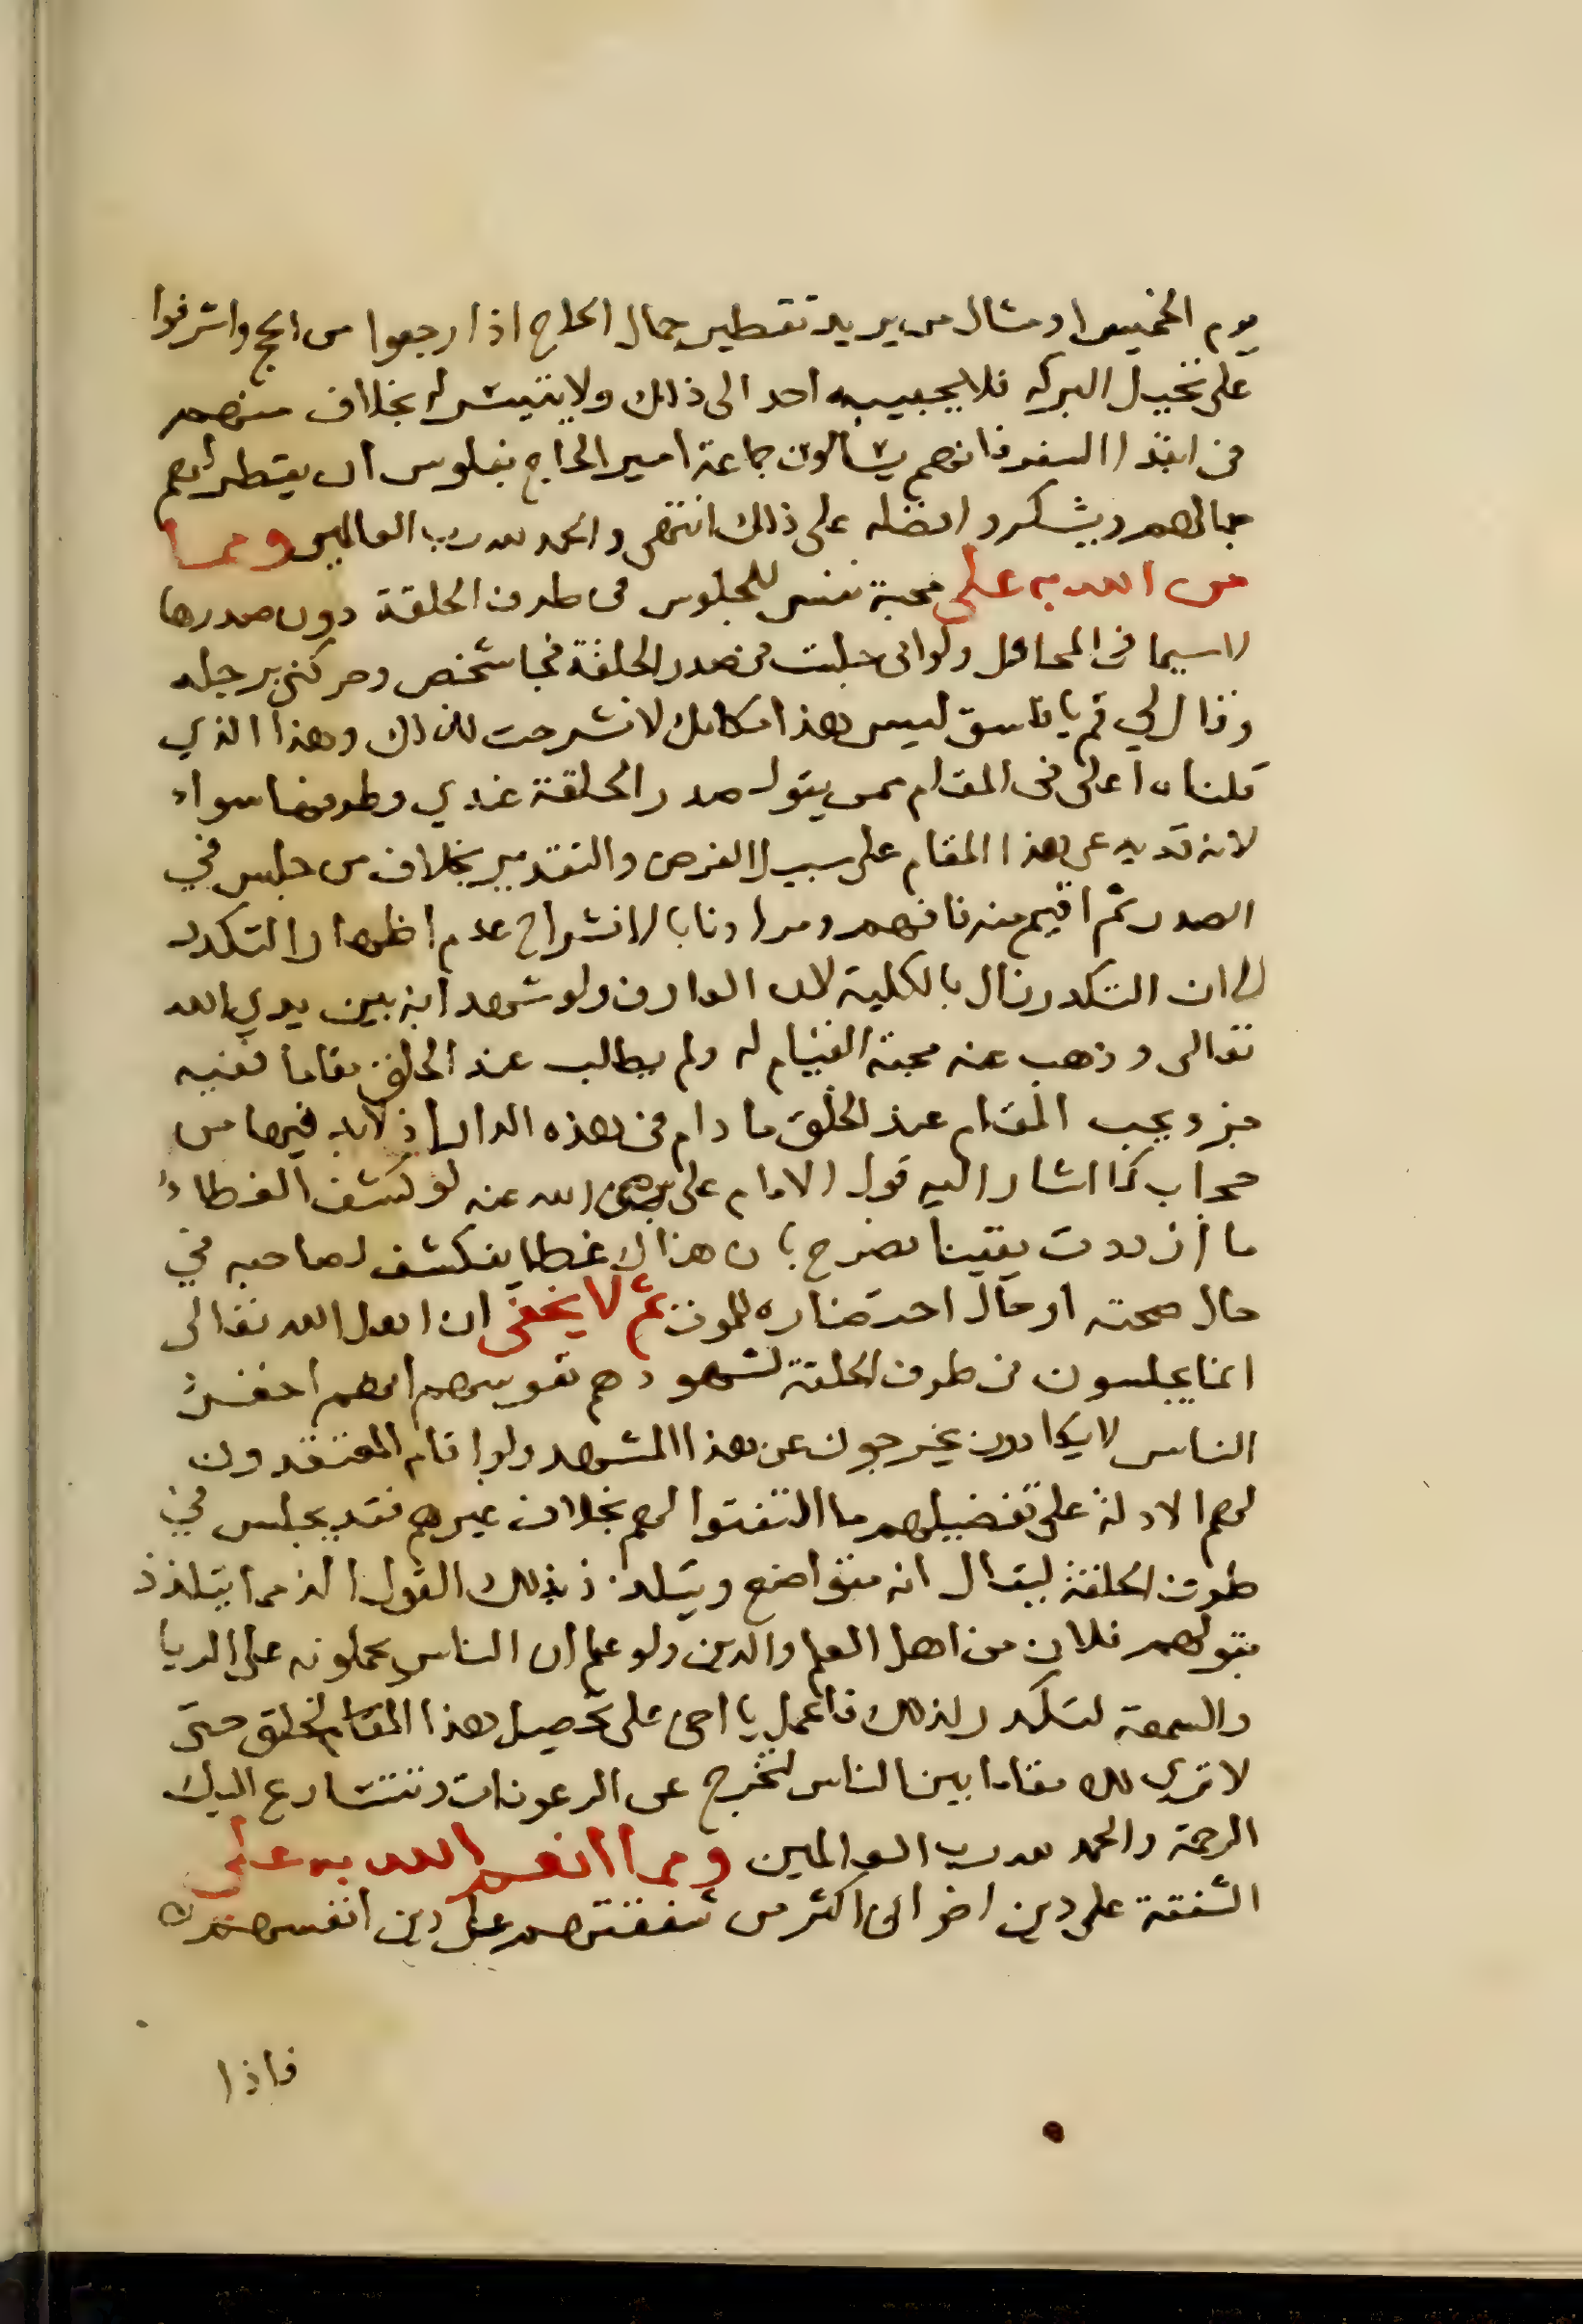 يوم الخميس او مثال من يريد تقطير جمال الحاج اذا رجعوا من الحج واشرفوا
على نخيل البركه فلا يجيبه احد الى ذلك ولا يتيسر له بخلاف منهم
فى ابتدا السفر فانهم يسألون جماعة امير الحاج بفلوس ان يقطر لهم
جمالهم ويشكروا فضله على ذلك انتهى والحمد لله رب العالمين ومما
من الله به على محبة نفسى للجلوس فى طرف الحلقة دون صدرها
لاسيما فى المحافل ولو انى جلست فى صدر الحلقة فجا شخص وحركنى برجله
وقال لي قم يا فاسق ليس هذا مكانك لانشرحت لذلك وهذا الذي
قلناه اعلى فى المقام ممن يقول صدر الحلقة عندي وطرفها سواء
لانه قد يدعى هذا المقام على سبيل الفرض والتقدير بخلاف من جلس في
الصدر ثم اقيم منه فافهم ومرادنا بالانشراح عدم اظهار التكدر
لا ان التكدر زال بالكلية لان العارف ولو شهد انه بين يدي الله
تعالى وذهب عنه محبة القيام له ولم يطالب عند الخلق مقاما ففيه
جزو يحب المقام عند الخلق ما دام فى هذه الدار اذ لابد فيها من
حجاب كما اشار اليه قول الامام على رضى الله عنه لو كشف الغطاء
ما ازددت يقينا فصرح بان هناك غطا ينكشف لصاحبه في
حال صحته او حال احتضاره للموت ثم لا يخفى ان اهل الله تعالى
انما يجلسون فى طرف الحلقة لشهودهم نفوسهم انهم احقر
الناس لا يكادون يخرجون عن هذا المشهد ولو اقام المعتقدون
لهم الادلة على تفضيلهم ما التفتوا لهم بخلاف غيرهم فقد يجلس في
طرف الحلقة ليقال انه متواضع ويتلذذ بذلك القول الذ مما يتلذذ
بقولهم فلان من اهل العلم والدين ولو علم ان الناس يحملونه على الريا
والسمعة لتكدر لذلك فاعمل يا اخى على تحصيل هذا المقام لتخلق حتى
لا ترى لك مقاما بين الناس لتخرج عن الرعونات وتتسارع اليك
الرحمة والحمد لله رب العالمين ومما انعم الله به على
الشفقة على دين اخوانى اكثر من شفقتهم على دين انفسهم
فاذا